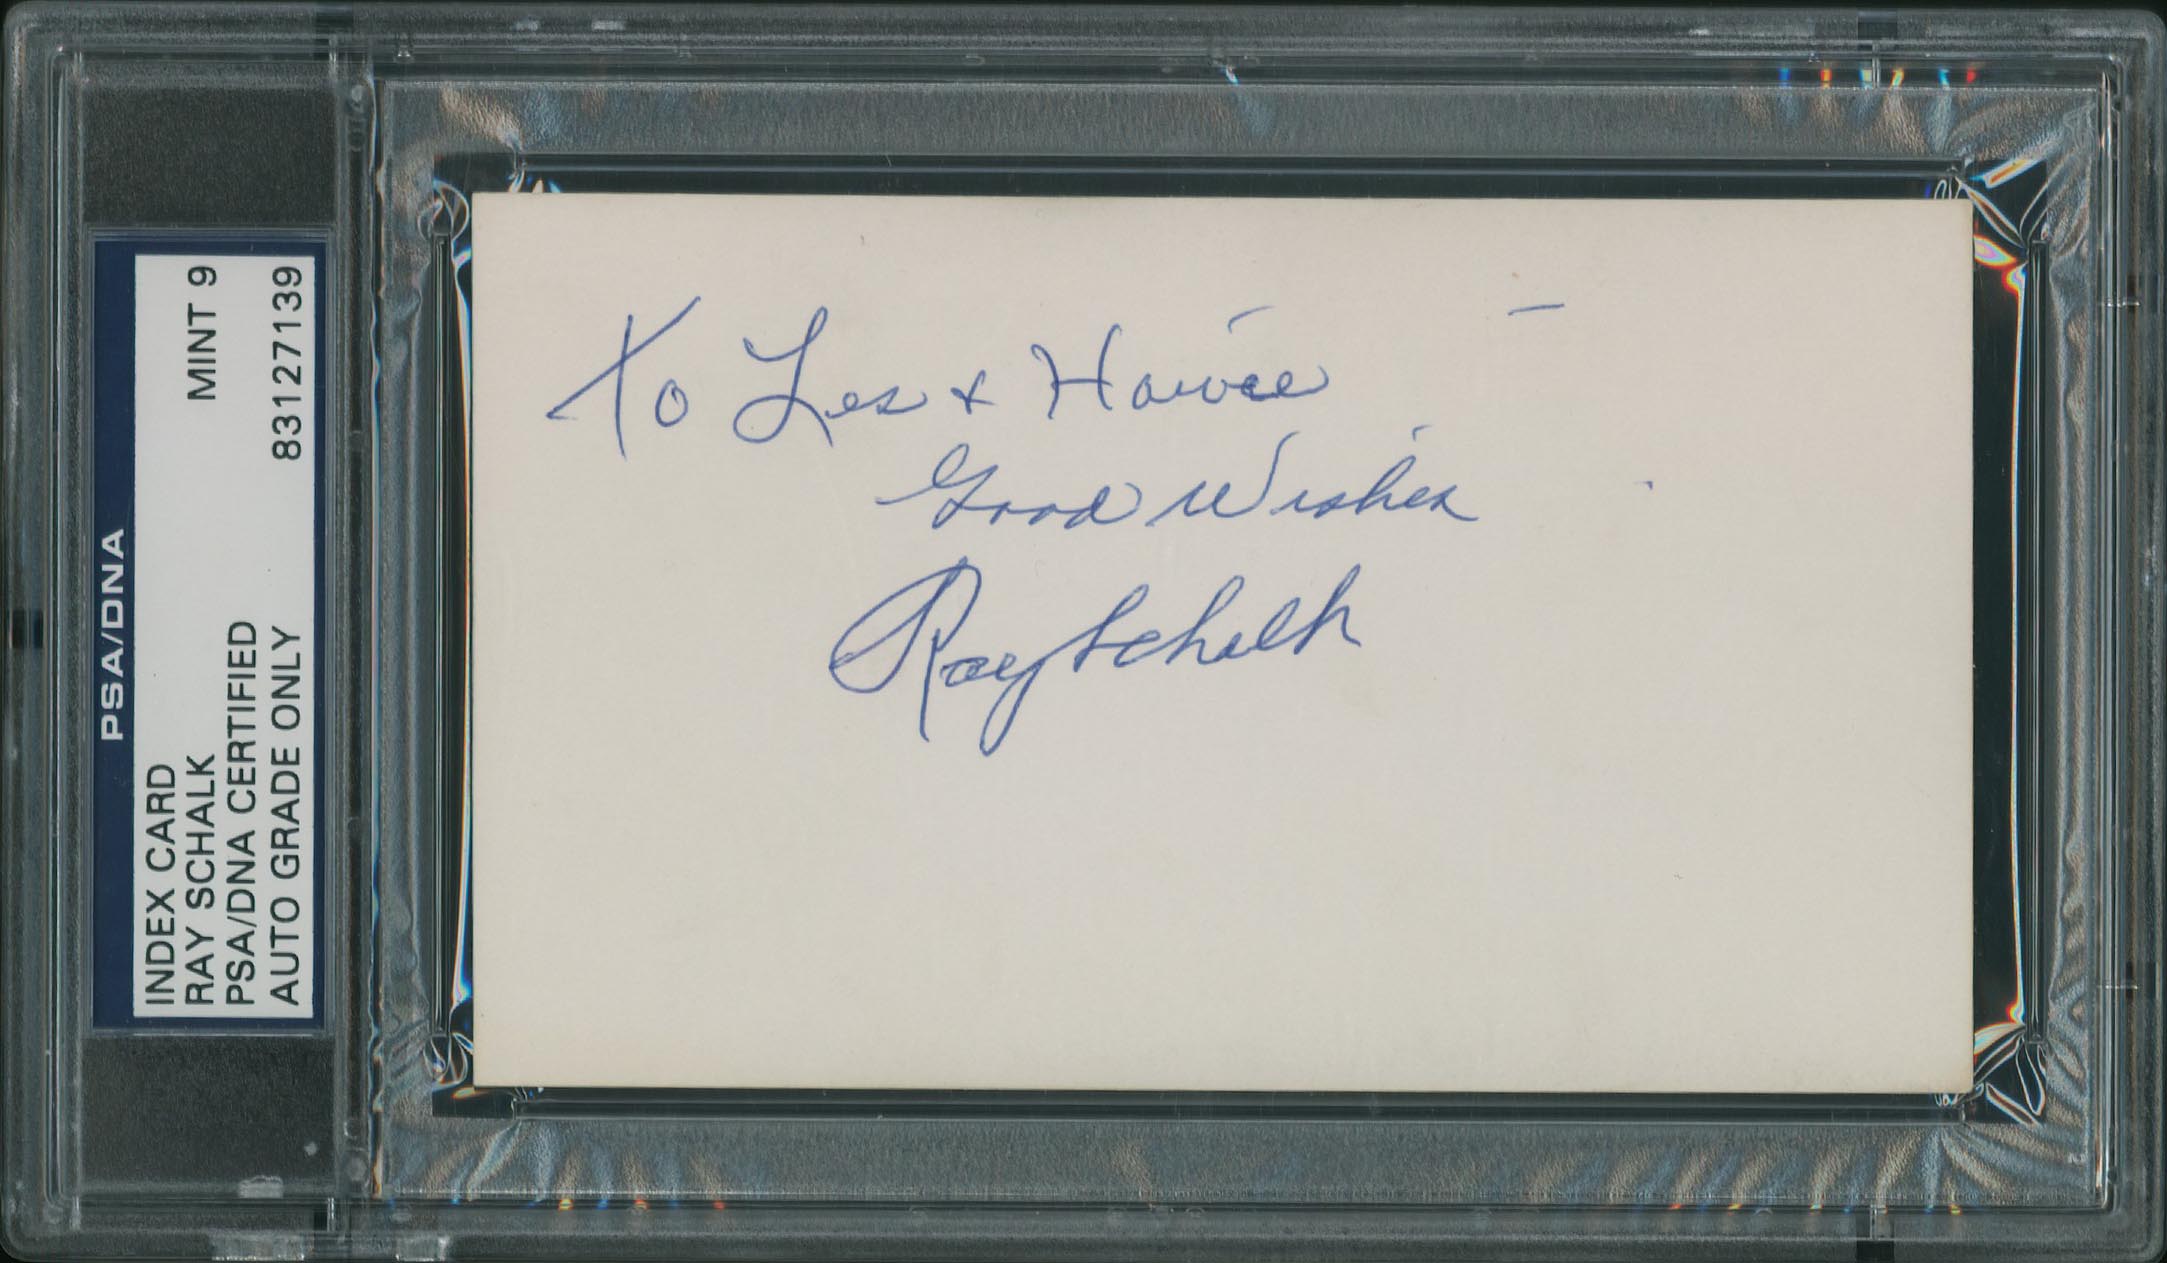 PSA/DNA
INDEX CARD MINT 9
RAY SCHALK
PSA/DNA CERTIFIED
AUTO GRADE ONLY 83127139
To Les & Howie
Good Wishes
Ray Schalk